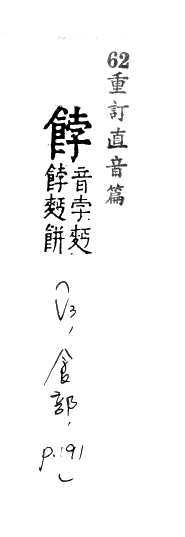 62重訂直音篇
餑
音孛麪
餑麪餅
(V3, 食部, p.191)